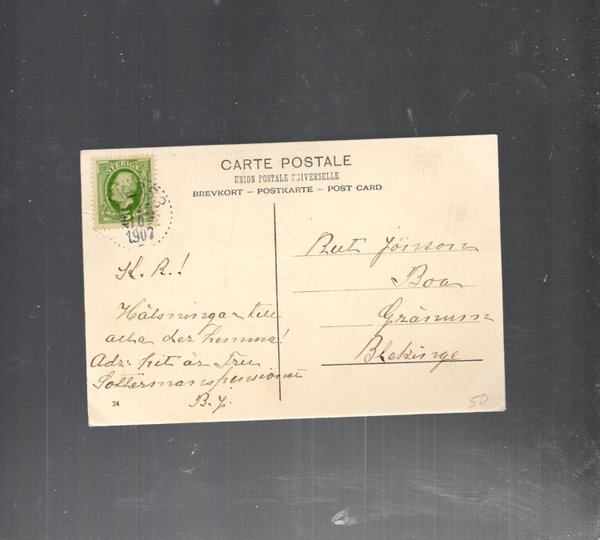 SVERIGE
1907
CARTE POSTALE
UNION POSTALE UNIVERSELLE
BREVKORT – POSTKARTE – POST CARD
K. R.!
Hälsningar till
alla der hemma!
Adr: hit är Fru
Sottermanspensionat
B. J.
24
Rut Jönson
Boa
Gränum
Blekinge
50